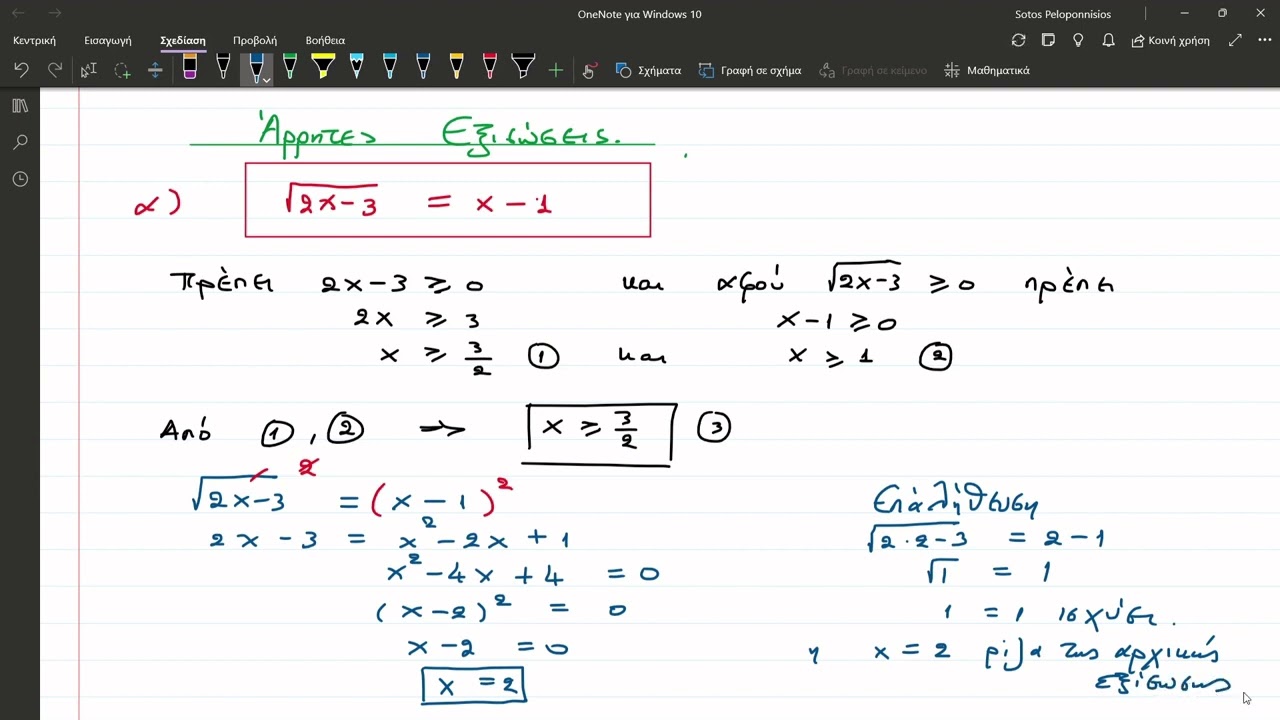 OneNote για Windows 10
Sotos Peloponnisios
Κεντρική Εισαγωγή Σχεδίαση Προβολή Βοήθεια
Κοινή χρήση
Σχήματα Γραφή σε σχήμα Γραφή σε κείμενο Μαθηματικά
Άρρητες Εξισώσεις.
α) √(2x-3) = x-1
Πρέπει 2x-3 ≥ 0 και αφού √(2x-3) ≥ 0 πρέπει
2x ≥ 3 x-1 ≥ 0
x ≥ 3/2 ① και x ≥ 1 ②
Από ①, ② → x ≥ 3/2 ③
√(2x-3)² = (x-1)²
2x-3 = x²-2x+1
x²-4x+4 = 0
(x-2)² = 0
x-2 = 0
x = 2
Επαλήθευση
√(2·2-3) = 2-1
√1 = 1
1 = 1 ισχύει.
η x = 2 ρίζα της αρχικής
εξίσωσης